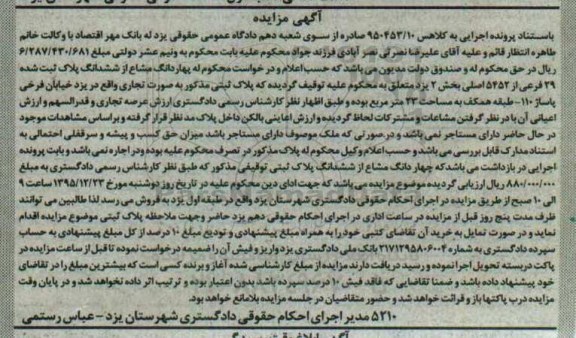 آگهی مزایده
باستناد پرونده اجرایی به کلاهس ۹۵۰۴۵۳/۱۰ صادره از سوی شعبه دهم دادگاه عمومی حقوقی یزد له بانک مهر اقتصاد با وکالت خانم
طاهره انتظار قائم و علیه آقای علیرضا نصر آبادی فرزند جواد محکوم علیه بابت محکوم به ونیم عشر دولتی مبلغ ۶/۲۸۷/۴۳۰/۶۸۱
ریال در حق محکوم له و صندوق دولت مدیون می باشد که حسب اعلام و درخواست محکوم له چهاردانگ مشاع از ششدانگ پلاک ثبت شده
۲۹ فرعی از ۵۴۵۲ اصلی بخش ۲ یزد متعلق به محکوم علیه توقیف گردیده که پلاک ثبتی مذکور به صورت تجاری واقع در یزد خیابان فرخی
پاساژ ۱۱۰ - طبقه همکف به مساحت ۴۳ متر مربع بوده و طبق اظهار نظر کارشناس رسمی دادگستری ارزش عرصه تجاری و قدرالسهم و ارزش
اعیانی آن با در نظر گرفتن مشاعات و مشترکات لحاظ گردیده و ارزش اعیانی بالکن داخل پلاک مد نظر قرار گرفته و براساس مشاهدات موجود
در حال حاضر دارای مستاجر نمی باشد و در صورتی که ملک موصوف دارای مستاجر باشد میزان حق کسب و پیشه و سرقفلی احتمالی به
استناد مدارک قابل بررسی می باشد و حسب اعلام وکیل محکوم له پلاک مذکور در تصرف محکوم علیه بوده و در اجاره نمی باشد و بابت پرونده
اجرایی در بازداشت می باشد که چهار دانگ مشاع از ششدانگ پلاک ثبتی توقیفی مذکور که طبق نظر کارشناس رسمی دادگستری به مبلغ
۸۸۰/۰۰۰/۰۰۰ ریال ارزیابی گردیده موضوع مزایده می باشد که جهت ادای دین محکوم علیه در تاریخ روز دوشنبه مورخ ۱۳۹۵/۱۲/۲۳ ساعت ۹
الی ۱۰ صبح از طریق مزایده در اجرای احکام حقوقی دادگستری شهرستان یزد واقع در طبقه اول یزد به فروش می رسد لذا طالبین می توانند
ظرف مدت پنج روز قبل از مزایده در ساعت اداری در اجرای احکام حقوقی دهم یزد حاضر وجهت ملاحظه پلاک ثبتی موضوع مزایده اقدام
نماید و در صورت تمایل به خرید آن تقاضای کتبی خود را به همراه مبلغ پیشنهادی و تودیع مبلغ ۱۰ درصد از کل مبلغ پیشنهادی به حساب
سپرده دادگستری به شماره ۲۱۷۱۲۹۵۸۰۶۰۰۴ بانک ملی دادگستری یزد واریز و فیش آن را ضمیمه درخواست نموده تا قبل از ساعت مزایده در
پاکت دربسته تحویل اجرا نموده و رسید دریافت دارند مزایده از مبلغ کارشناسی شده آغاز و برنده کسی است که بیشترین مبلغ را در تقاضای
خود پیشنهاد داده باشد و ضمنا تقاضایی که فاقد فیش ۱۰ درصد سپرده باشد بدون اعتبار بوده و ترتیب اثر داده نخواهد شد و در پایان وقت
مزایده درب پاکتها باز و قرائت خواهد شد و حضور متقاضیان در جلسه مزایده بلامانع خواهد بود.
۵۲۱۰ مدیر اجرای احکام حقوقی دادگستری شهرستان یزد - عباس رستمی